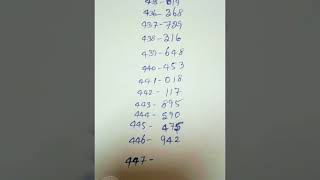 436-368
437-729
438-216
439-648
440-453
441-018
442-117
443-895
444-590
445-475
446-942
447-